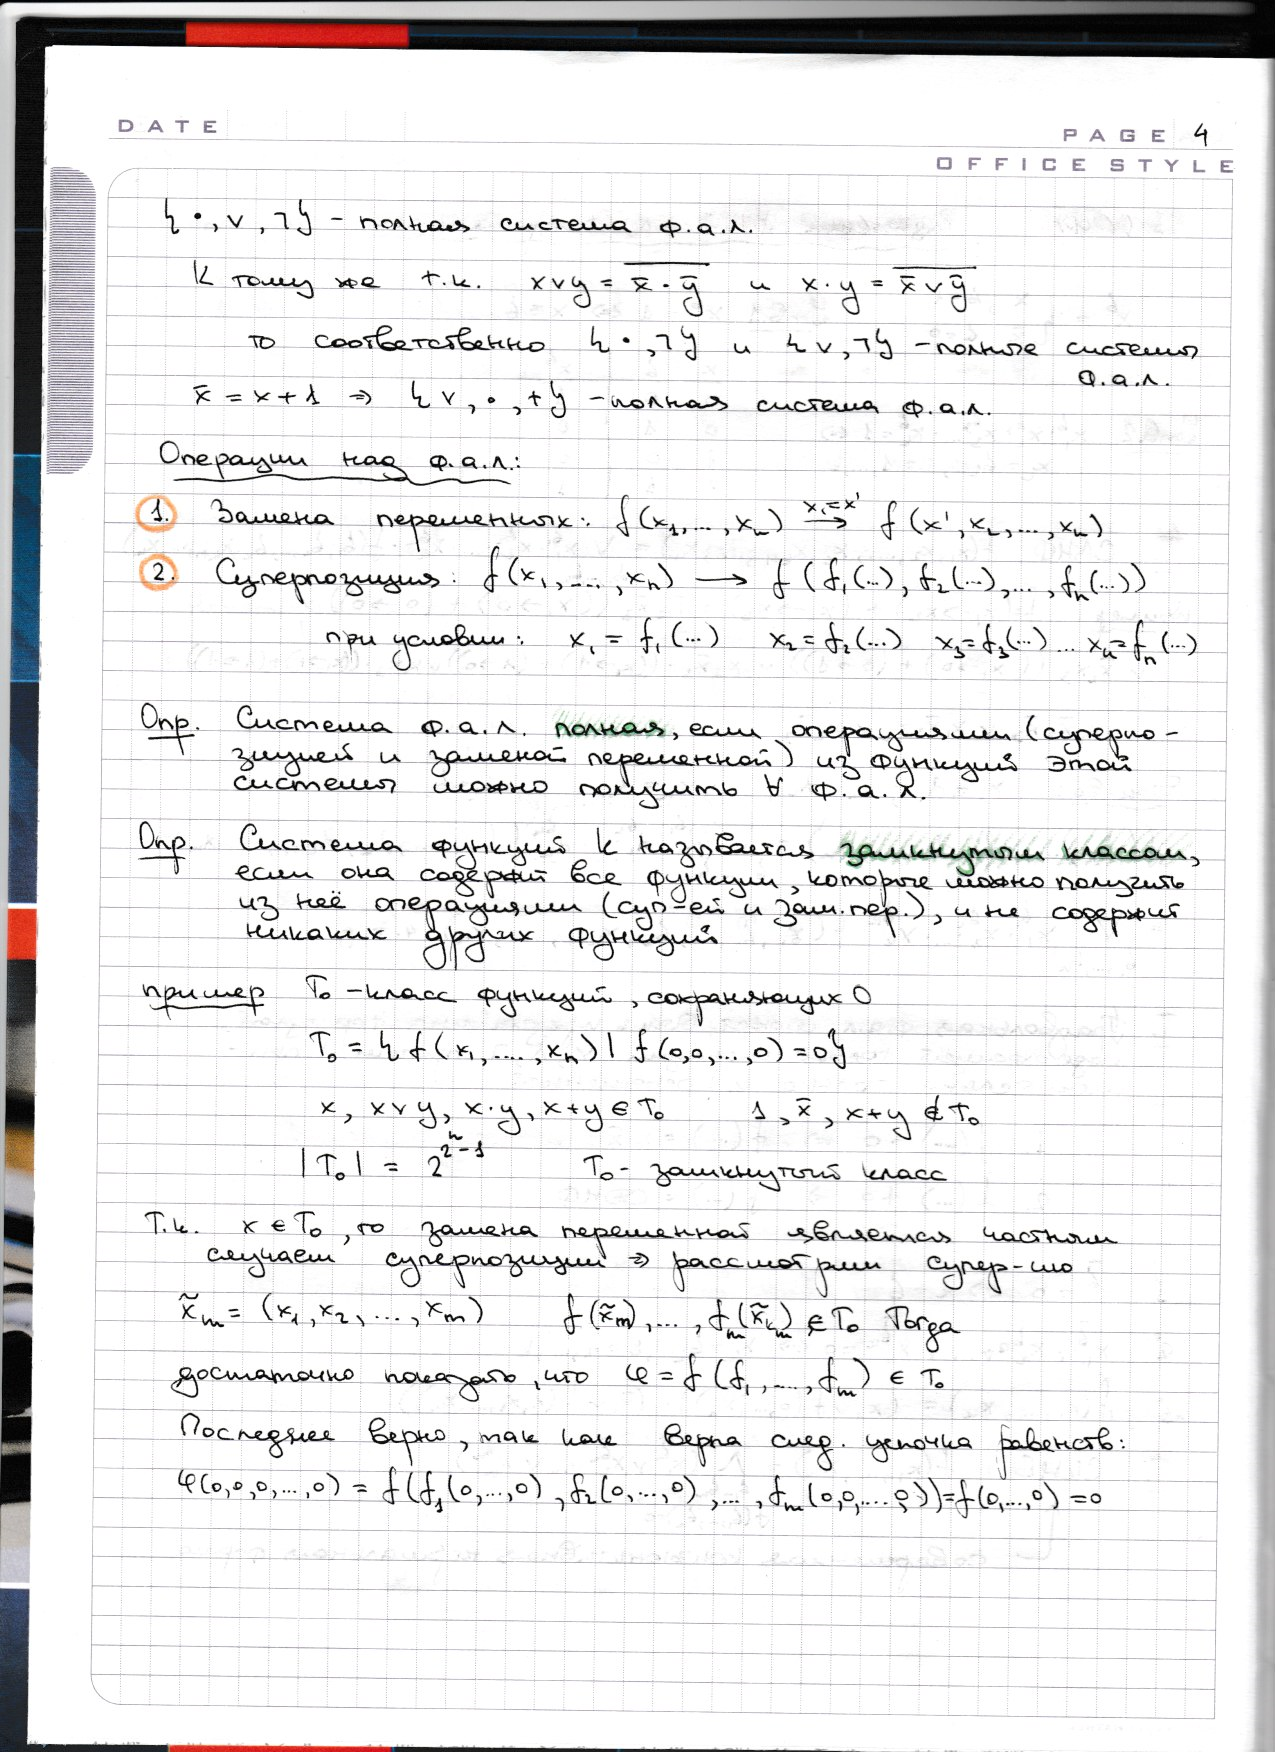 DATE
PAGE 4
OFFICE STYLE
{ •, ∨, ¬} – полная система ф.а.л.
К тому же т.к. x∨y = \overline{x̄ · ȳ} и x·y = \overline{x̄ ∨ ȳ}
то соответственно { •, ¬} и { ∨, ¬} – полные системы
ф.а.л.
x̄ = x+1 ⇒ { ∨, •, +} – полная система ф.а.л.
Операции над ф.а.л.:
1. Замена переменных: f(x₁,...,xₙ) →^{x₁=x'} f(x',x₂,...,xₙ)
2. Суперпозиция: f(x₁,...,xₙ) → f(f₁(...), f₂(...),..., fₙ(...))
при условии: x₁ = f₁(...) x₂=f₂(...) x₃=f₃(...) ... xₙ=fₙ(...)
Опр. Система ф.а.л. полная, если операциями (суперпо-
зицией и заменой переменной) из функций этой
системы можно получить ∀ ф.а.л.
Опр. Система функций K называется замкнутым классом,
если она содержит все функции, которые можно получить
из неё операциями (суп-ей и зам.пер.), и не содержит
никаких других функций
пример T₀ – класс функций, сохраняющих 0
T₀ = { f(x₁,....,xₙ) | f(0,0,...,0)=0}
x, x∨y, x·y, x+y ∈ T₀ 1, x̄, x+y ∉ T₀
|T₀| = 2^{2ⁿ-1} T₀ - замкнутый класс
Т.к. x ∈ T₀, то замена переменной является частным
случаем суперпозиции ⇒ рассмотрим супер-ию
x̃ₘ = (x₁, x₂, ..., xₘ) f(x̃ₘ),..., fₘ(x̃ₖₘ) ∈ T₀ Тогда
достаточно показать, что φ = f(f₁,....,fₘ) ∈ T₀
Последнее верно, так как верна след. цепочка равенств:
φ(0,0,0,...,0) = f(f₁(0,...,0), f₂(0,...,0),..., fₘ(0,0,...,0))=f(0,...,0) =0